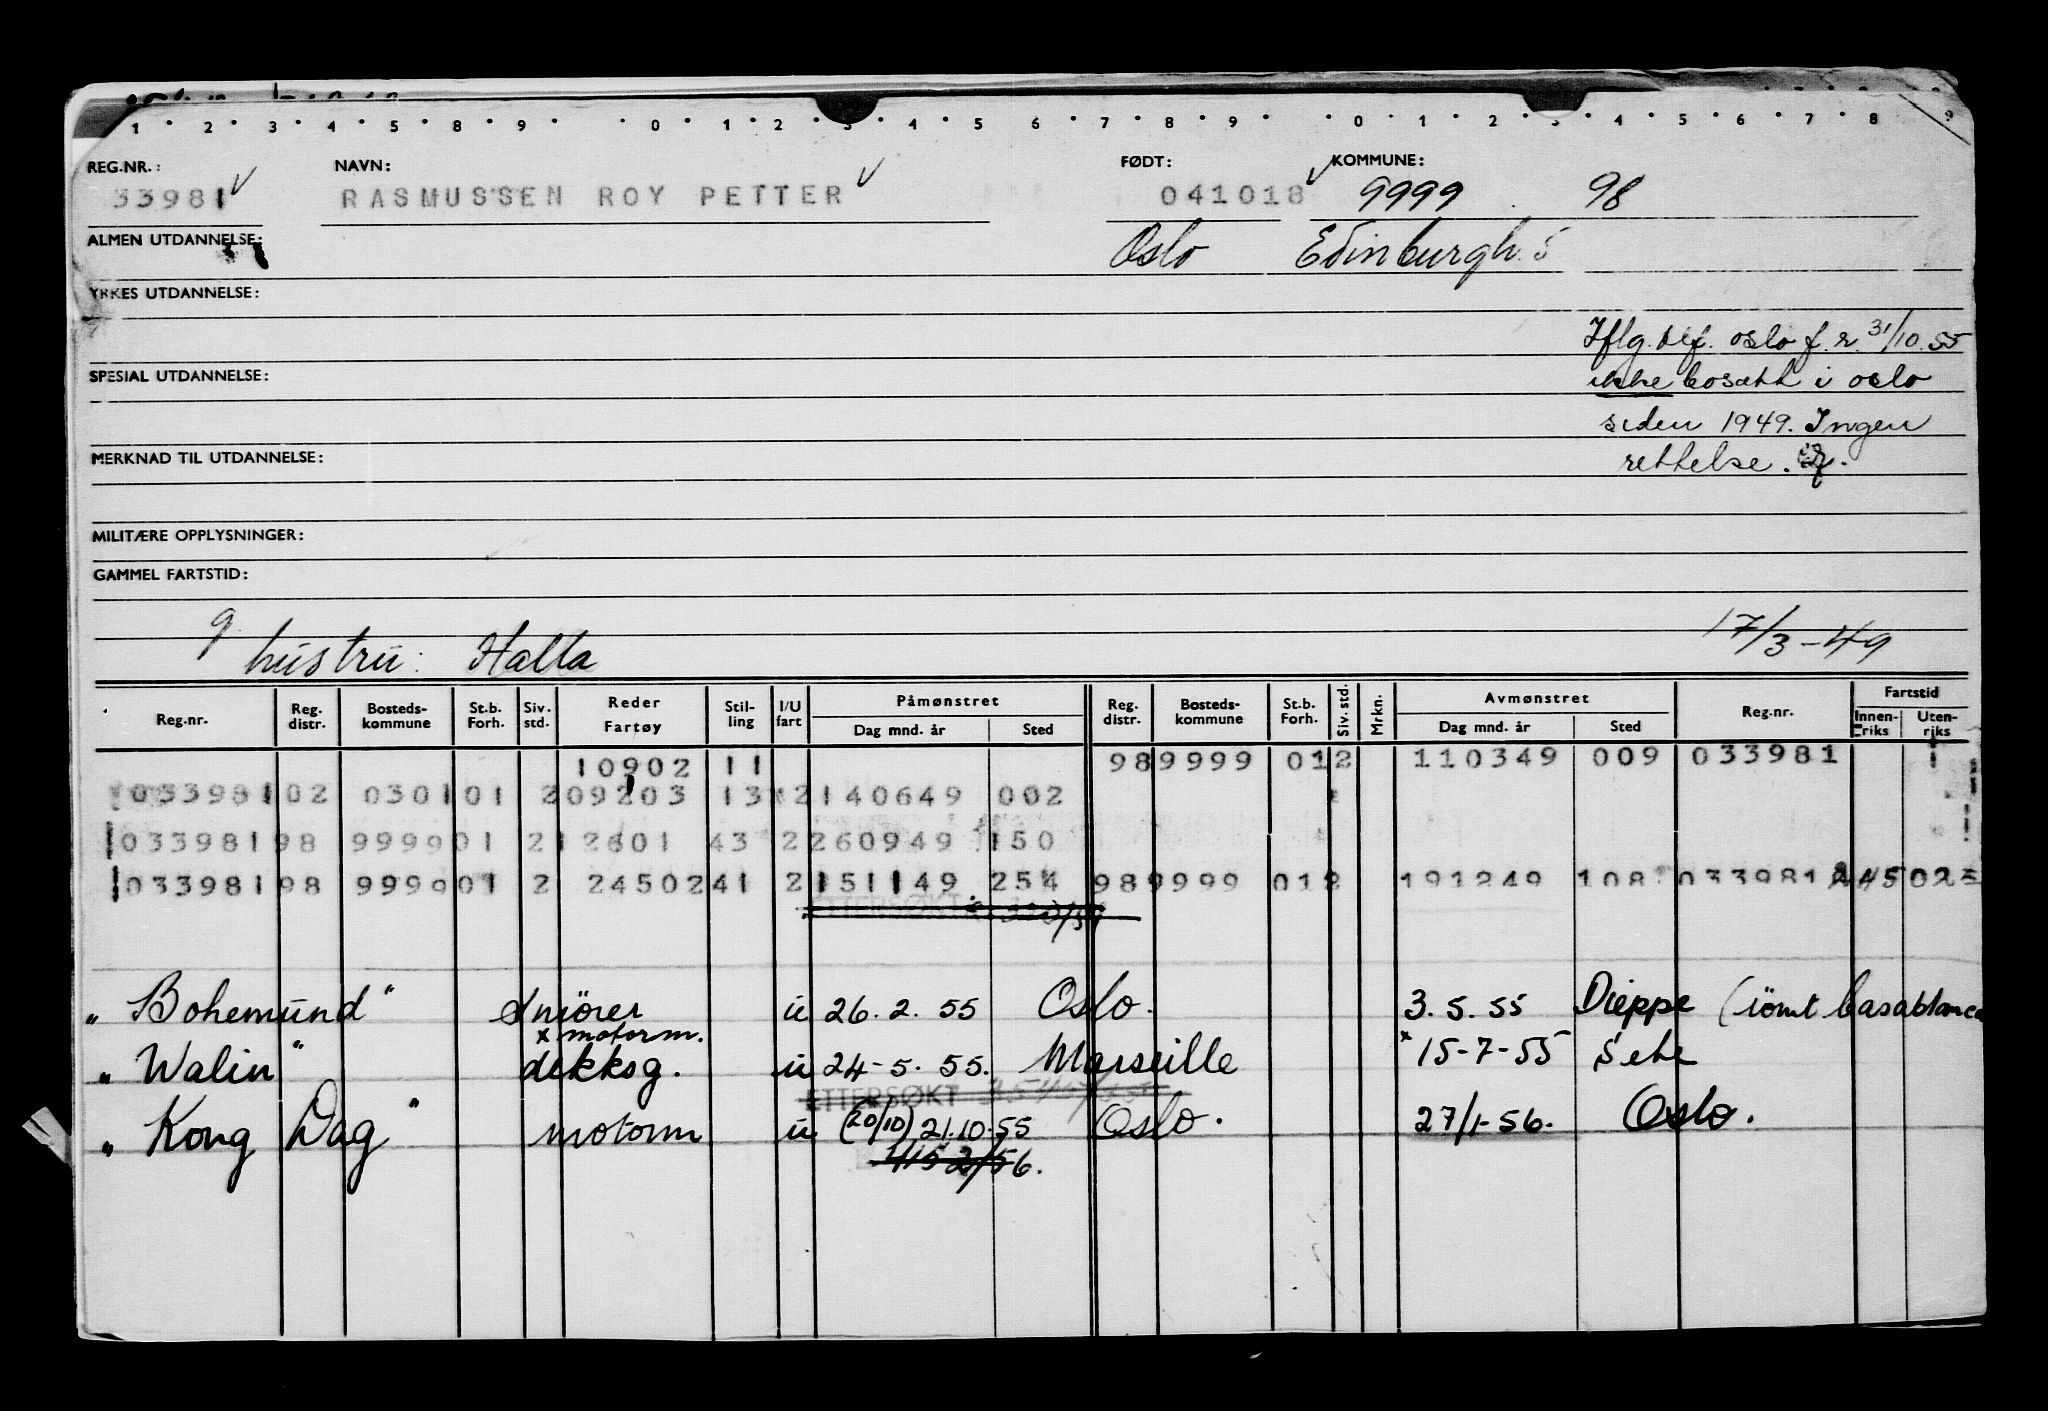 1 2 3 4 5 8 9 0 1 2 3 4 5 6 7 8 9 0 1 2 3 4 5 6 7 8 9
REG.NR.: NAVN: FØDT: KOMMUNE:
33981 RASMUSSEN ROY PETTER 041018 9999 98
ALMEN UTDANNELSE: Oslo Edinburgh. 5
YRKES UTDANNELSE:
Iflg. Oslo f.r. 31/10.55
SPESIAL UTDANNELSE: ikke bosatt i oslo
siden 1949. Ingen
MERKNAD TIL UTDANNELSE: rettelse.
MILITÆRE OPPLYSNINGER:
GAMMEL FARTSTID:
g. hustru: Halla 17/3-49
Reg.nr. Reg. distr. Bosteds-kommune St.b. Forh. Siv. std. Reder Fartøy Stil-ling I/U fart Påmønstret Dag mnd. år Sted Reg. distr. Bosteds-kommune St.b. Forh. Siv. std. Mrkn. Avmønstret Dag mnd. år Sted Reg.nr. Fartstid Innen-riks Uten-riks
10902 11 98 9999 01 2 110349 009 033981
033981 02 0301 01 2 09203 13 2 140649 002
033981 98 9999 01 2 12601 43 2 260949 150
033981 98 9999 01 2 24502 41 2 151149 254 98 9999 01 2 191249 108 033981
ETTERSØKT
"Bohemund" Smörer u 26. 2. 55 Oslo. 3. 5. 55 Dieppe (römt Casablanca
x motorm.
"Walin" dekksg. u 24-5. 55. Marseille x 15-7-55 Sete
ETTERSØKT
"Kong Dag" motorm u (20/10) 21.10.55 Oslo. 27/1-56. Oslo.
415 2/56.